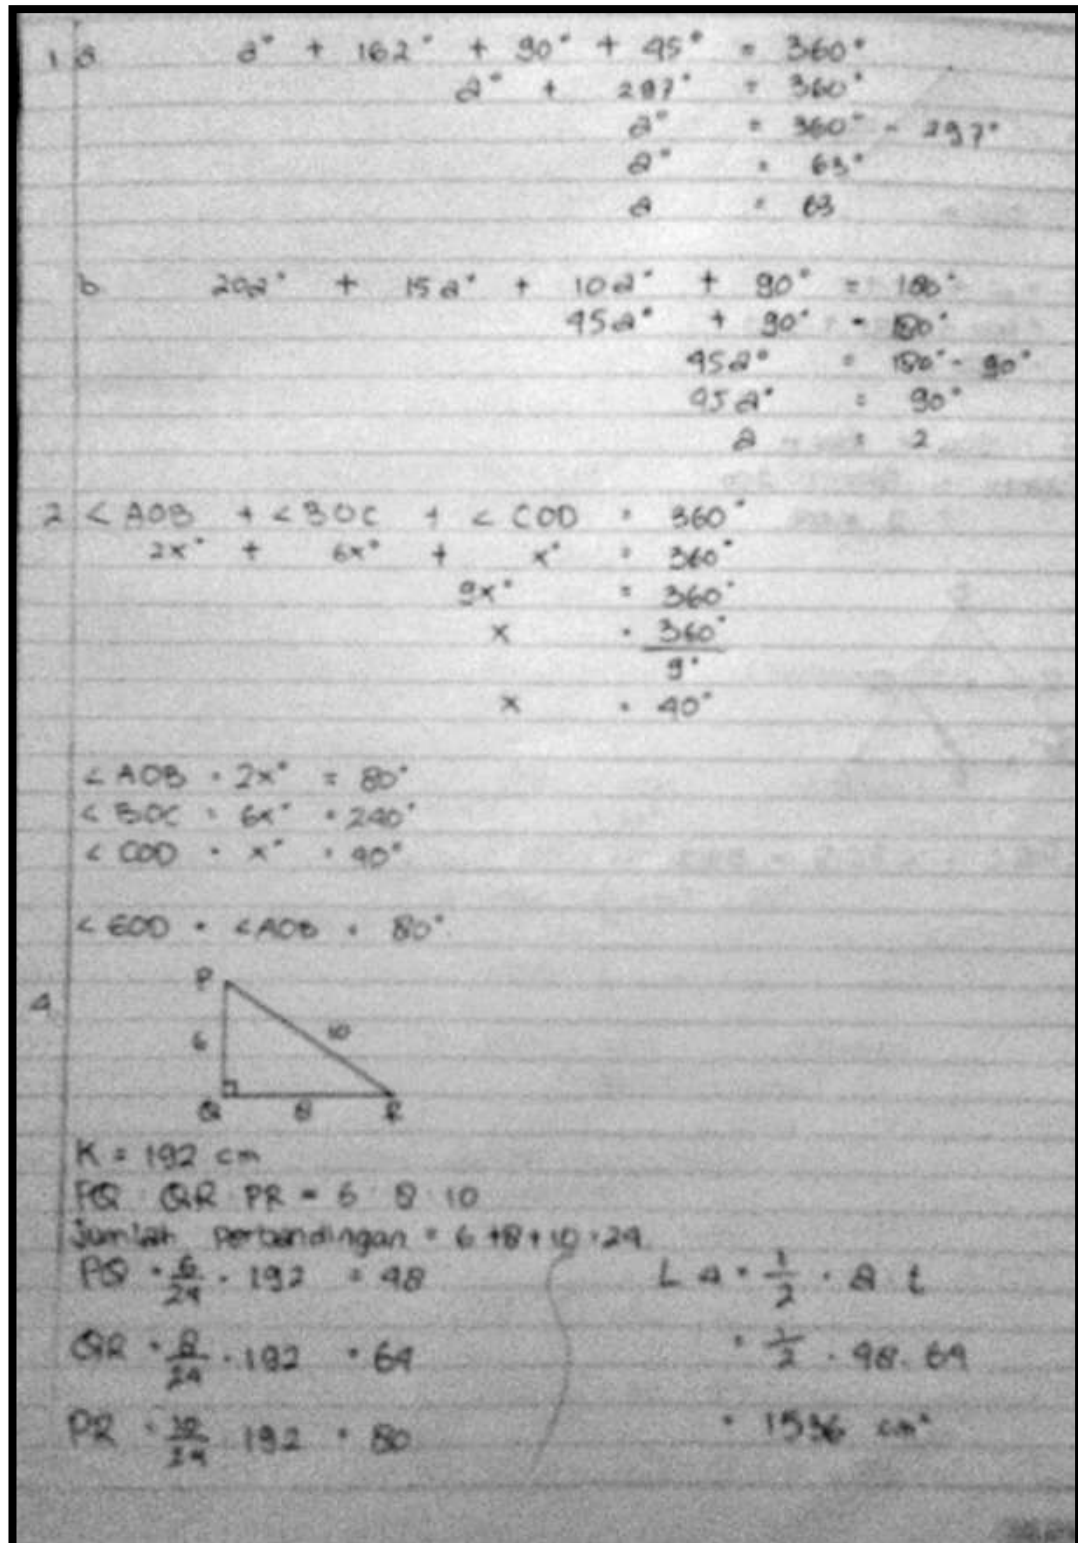 1 a a° + 162° + 90° + 45° = 360°
a° + 297° = 360°
a° = 360° - 297°
a° = 63°
a = 63
b 20a° + 15a° + 10a° + 90° = 180°
45a° + 90° = 180°
45a° = 180° - 90°
45a° = 90°
a = 2
2 < AOB + < BOC + < COD = 360°
2x° + 6x° + x° = 360°
9x° = 360°
x = 360° / 9°
x = 40°
< AOB = 2x° = 80°
< BOC = 6x° = 240°
< COD = x° = 40°
< EOD = < AOB = 80°
4
P
6 10
Q 8 R
K = 192 cm
PQ : QR : PR = 6 : 8 : 10
Jumlah perbandingan = 6+8+10=24
PQ = 6/24 . 192 = 48 L △ = 1/2 . a . t
QR = 8/24 . 192 = 64 = 1/2 . 48 . 64
PR = 10/24 . 192 = 80 = 1536 cm²